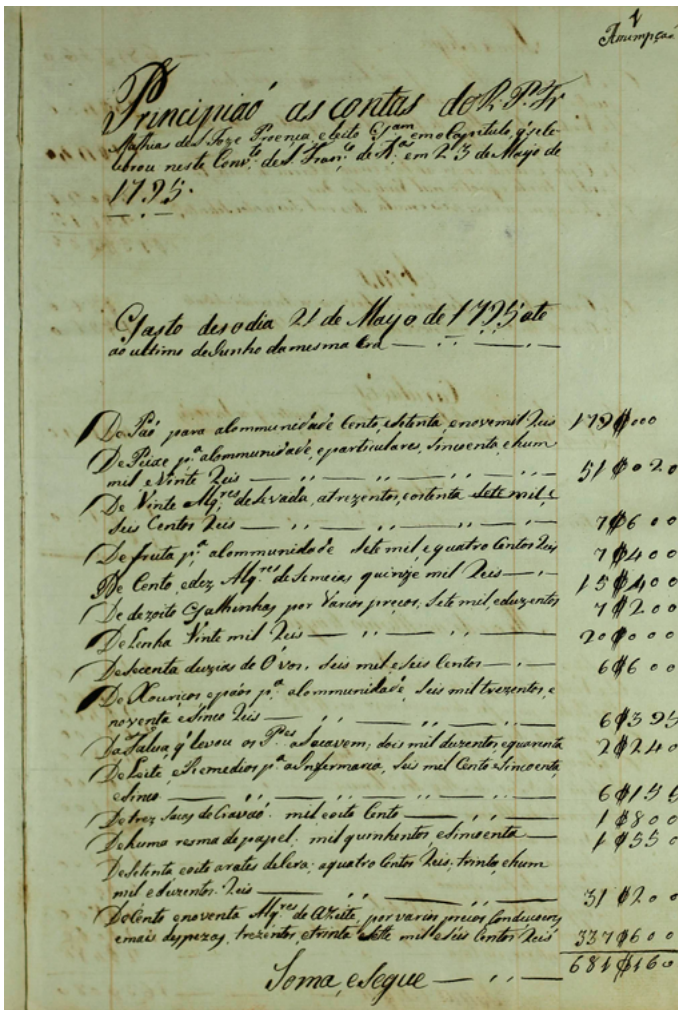 1
Assumpçaõ
Principiaõ as contas do R. P. Fr
Mathias de S. Joze Proença, eleito Gam em o Capitulo, q̃ sele-
brou neste Convto de S. Franco de em 23 de Mayo de
1795.
Gasto des o dia 21 de Mayo de 1795 ate
ao ultimo de Junho da mesma Era
De Paõ para aCommunidade Cento, esetenta, enovemil Reis 179$000
De Peixe pa aCommunidade, eparticulares, sincoenta, ehum
mil eVinte Reis 51$020
De Vinte Alqres deSevada, atrezentos, eoitenta sete mil, e
seis Centos Reis 7$600
De fruta pa aCommunidade sete mil, equatro Centos Reis 7$400
De Cento, edez Alqres deSemeias quinze mil Reis 15$400
De dezoito Galhinhas, por Varios preços, sete mil, eduzentos 7$200
DeLenha Vinte mil Reis 20$000
DeSecenta duzias de Óvos, seis mil eseis Centos 6$600
De Xouriços epaios pa aCommunidade, seis mil trezentos, e
noventa, eSinco Reis 6$395
Da Falua q̃ levou os Pes aSacavem; dois mil duzentos, equarenta 2$240
DeLeite, eRemedios pa aInfermaria, seis mil Cento eSincoenta,
eSinco 6$155
De trez sacas de Carvaõ mil eoito Centos 1$800
De huma resma de papel mil quinhentos, eSincoenta 1$550
DeSetenta eoito arates deCera; aquatro Centos Reis, trinta, ehum
mil eduzentos Reis 31$200
DeCento enoventa Alqres de Azeite, por varios preços Conduçoens
emais despezas, trezentos, etrinta eSete mil eSeis Centos Reis 337$600
Soma, eSegue 681$160